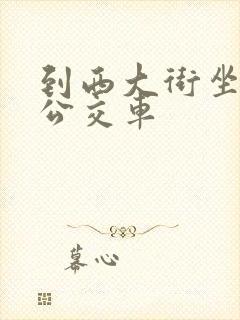 到西大街坐
公交车
幕心